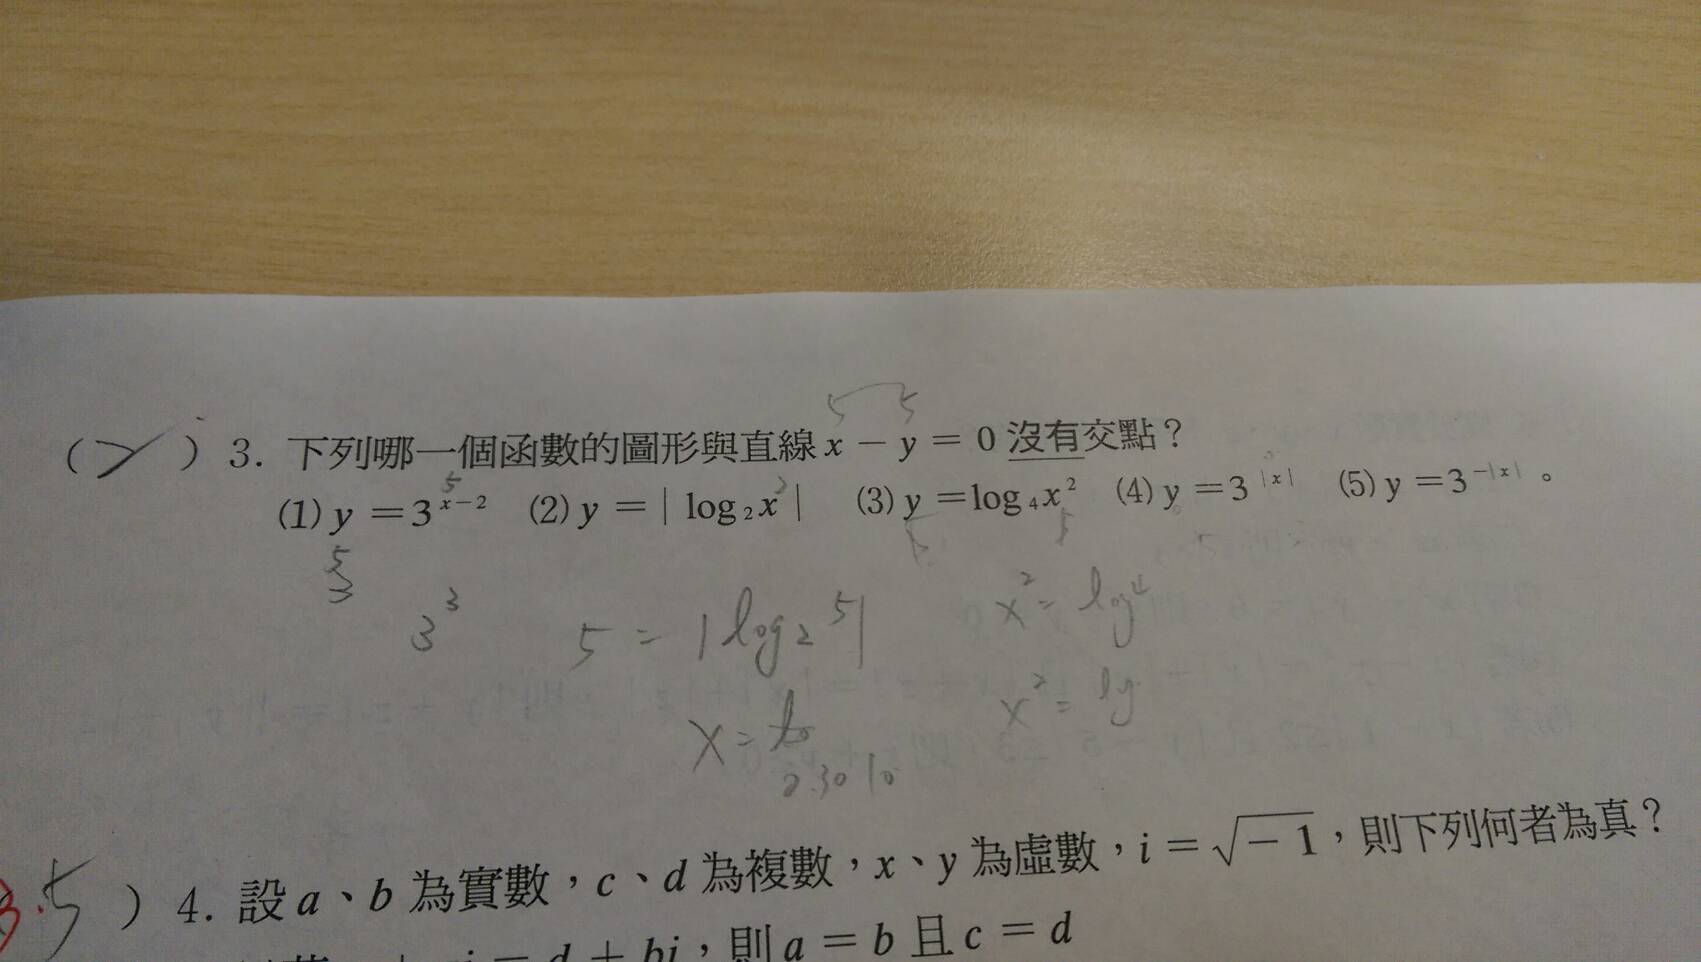 5 5
( ) 3. 下列哪一個函數的圖形與直線 x − y = 0 沒有交點？
5
(1) y = 3^{x−2} (2) y = | log₂x | (3) y = log₄x² (4) y = 3^{|x|} (5) y = 3^{−|x|}。
5
3
3³
5 = | log₂ 5 |
x² = log 4
x² = lg
x =
) 4. 設 a、b 為實數，c、d 為複數，x、y 為虛數，i = √−1，則下列何者為真？
= d + bi，則 a = b 且 c = d